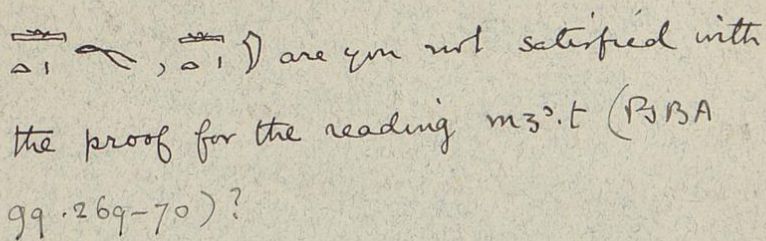 , ) are you not satisfied with
the proof for the reading m3ʾ.t (PSBA
99.269-70)?